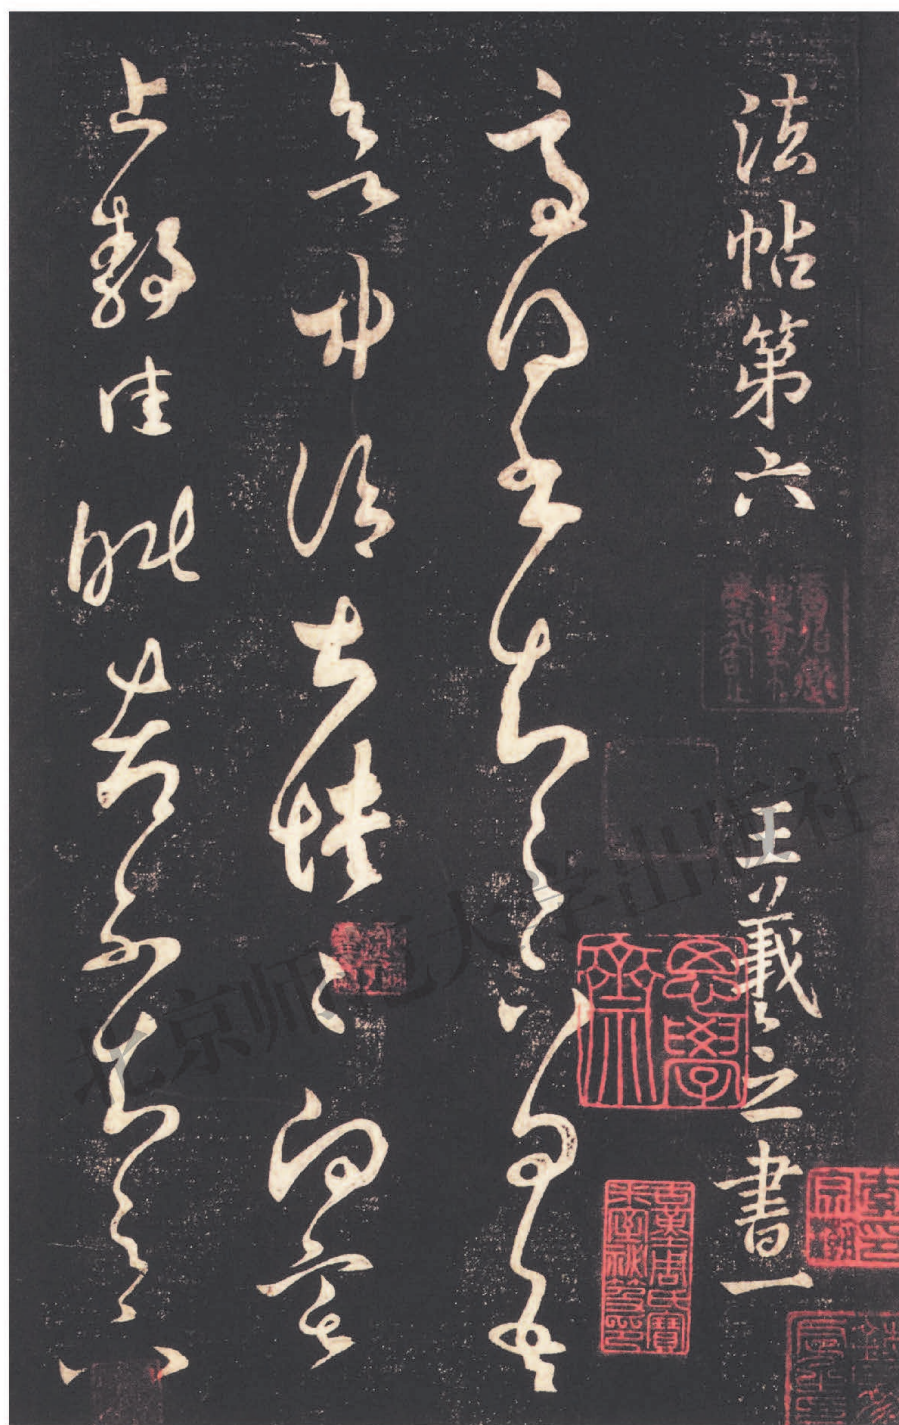 法帖第六 王羲之書一
適得書知足下問吾
欲中冷甚憒憒向宅
上靜佳眠都不知足下
思學齋
北京师范大学出版社